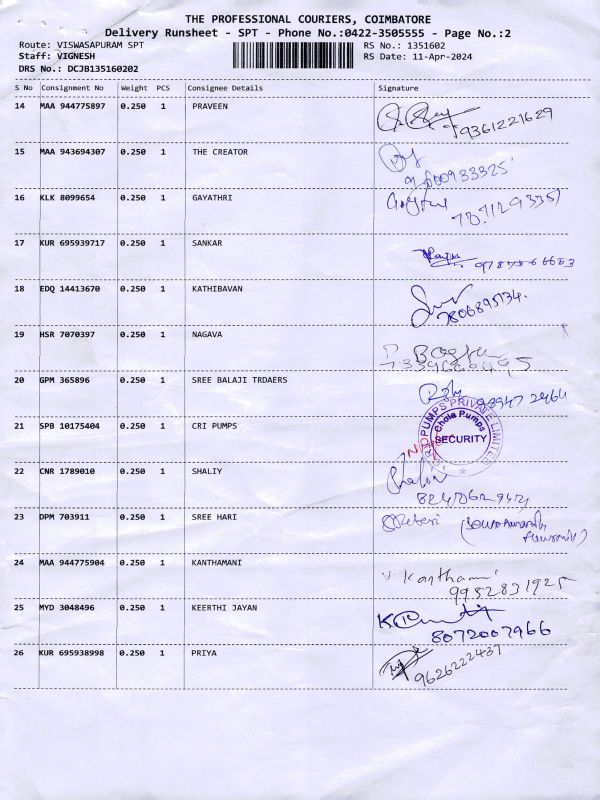 THE PROFESSIONAL COURIERS, COIMBATORE
Delivery Runsheet - SPT - Phone No.:0422-3505555 - Page No.:2
Route: VISWASAPURAM SPT RS No.: 1351602
Staff: VIGNESH RS Date: 11-Apr-2024
DRS No.: DCJB135160202
S No Consignment No Weight PCS Consignee Details Signature
14 MAA 944775897 0.250 1 PRAVEEN
9361221629
15 MAA 943694307 0.250 1 THE CREATOR
9600933325
16 KLK 8099654 0.250 1 GAYATHRI
17 KUR 695939717 0.250 1 SANKAR
18 EDQ 14413670 0.250 1 KATHIBAVAN
7806895134.
19 HSR 7070397 0.250 1 NAGAVA
20 GPM 365896 0.250 1 SREE BALAJI TRDAERS
21 SPB 10175404 0.250 1 CRI PUMPS
PUMPS PRIVATE LIMITED
Chola Pumps
SECURITY
22 CNR 1789010 0.250 1 SHALIY
23 DPM 703911 0.250 1 SREE HARI
24 MAA 944775904 0.250 1 KANTHAMANI
9952831925
25 MYD 3048496 0.250 1 KEERTHI JAYAN
8072007966
26 KUR 695938998 0.250 1 PRIYA
9626222437